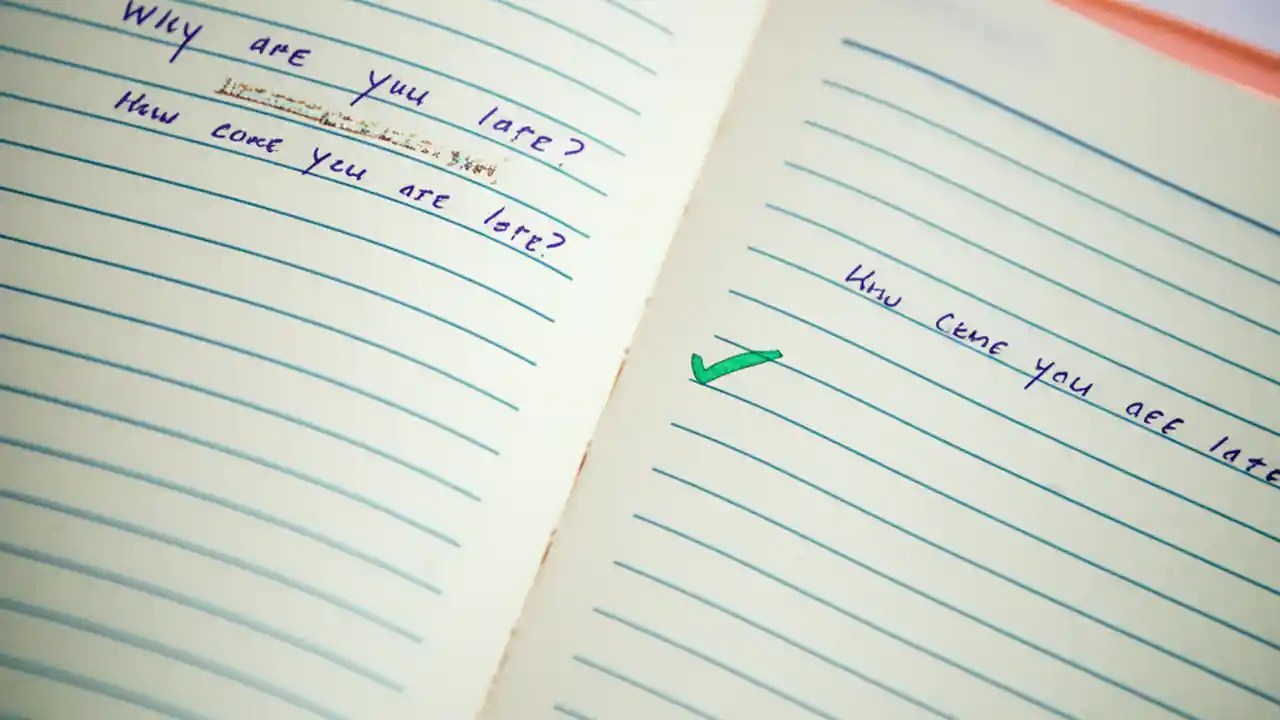 Why are you late?
How come you are late?
How come you are late